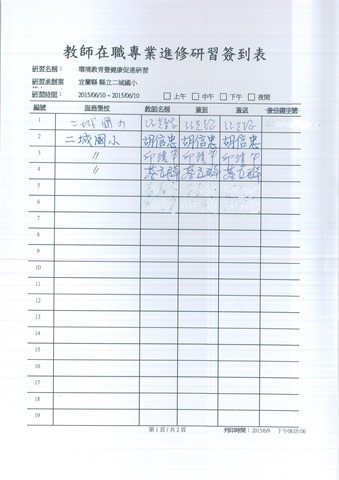 教師在職專業進修研習簽到表
研習名稱： 環境教育暨健康促進研習
研習承辦單 宜蘭縣 縣立二城國小
研習時間： 2015/06/10 ~ 2015/06/10 □上午 □中午 □下午 □夜間
編號 服務學校 教師名稱 簽到 簽退 身份證字號
1 二城國小
2 二城國小 胡信忠 胡信忠 胡信忠
3 〃
4 〃
5
6
7
8
9
10
11
12
13
14
15
16
17
18
19
第 1 頁 / 共 2 頁 列印時間：2015/6/9 下午08:05:06